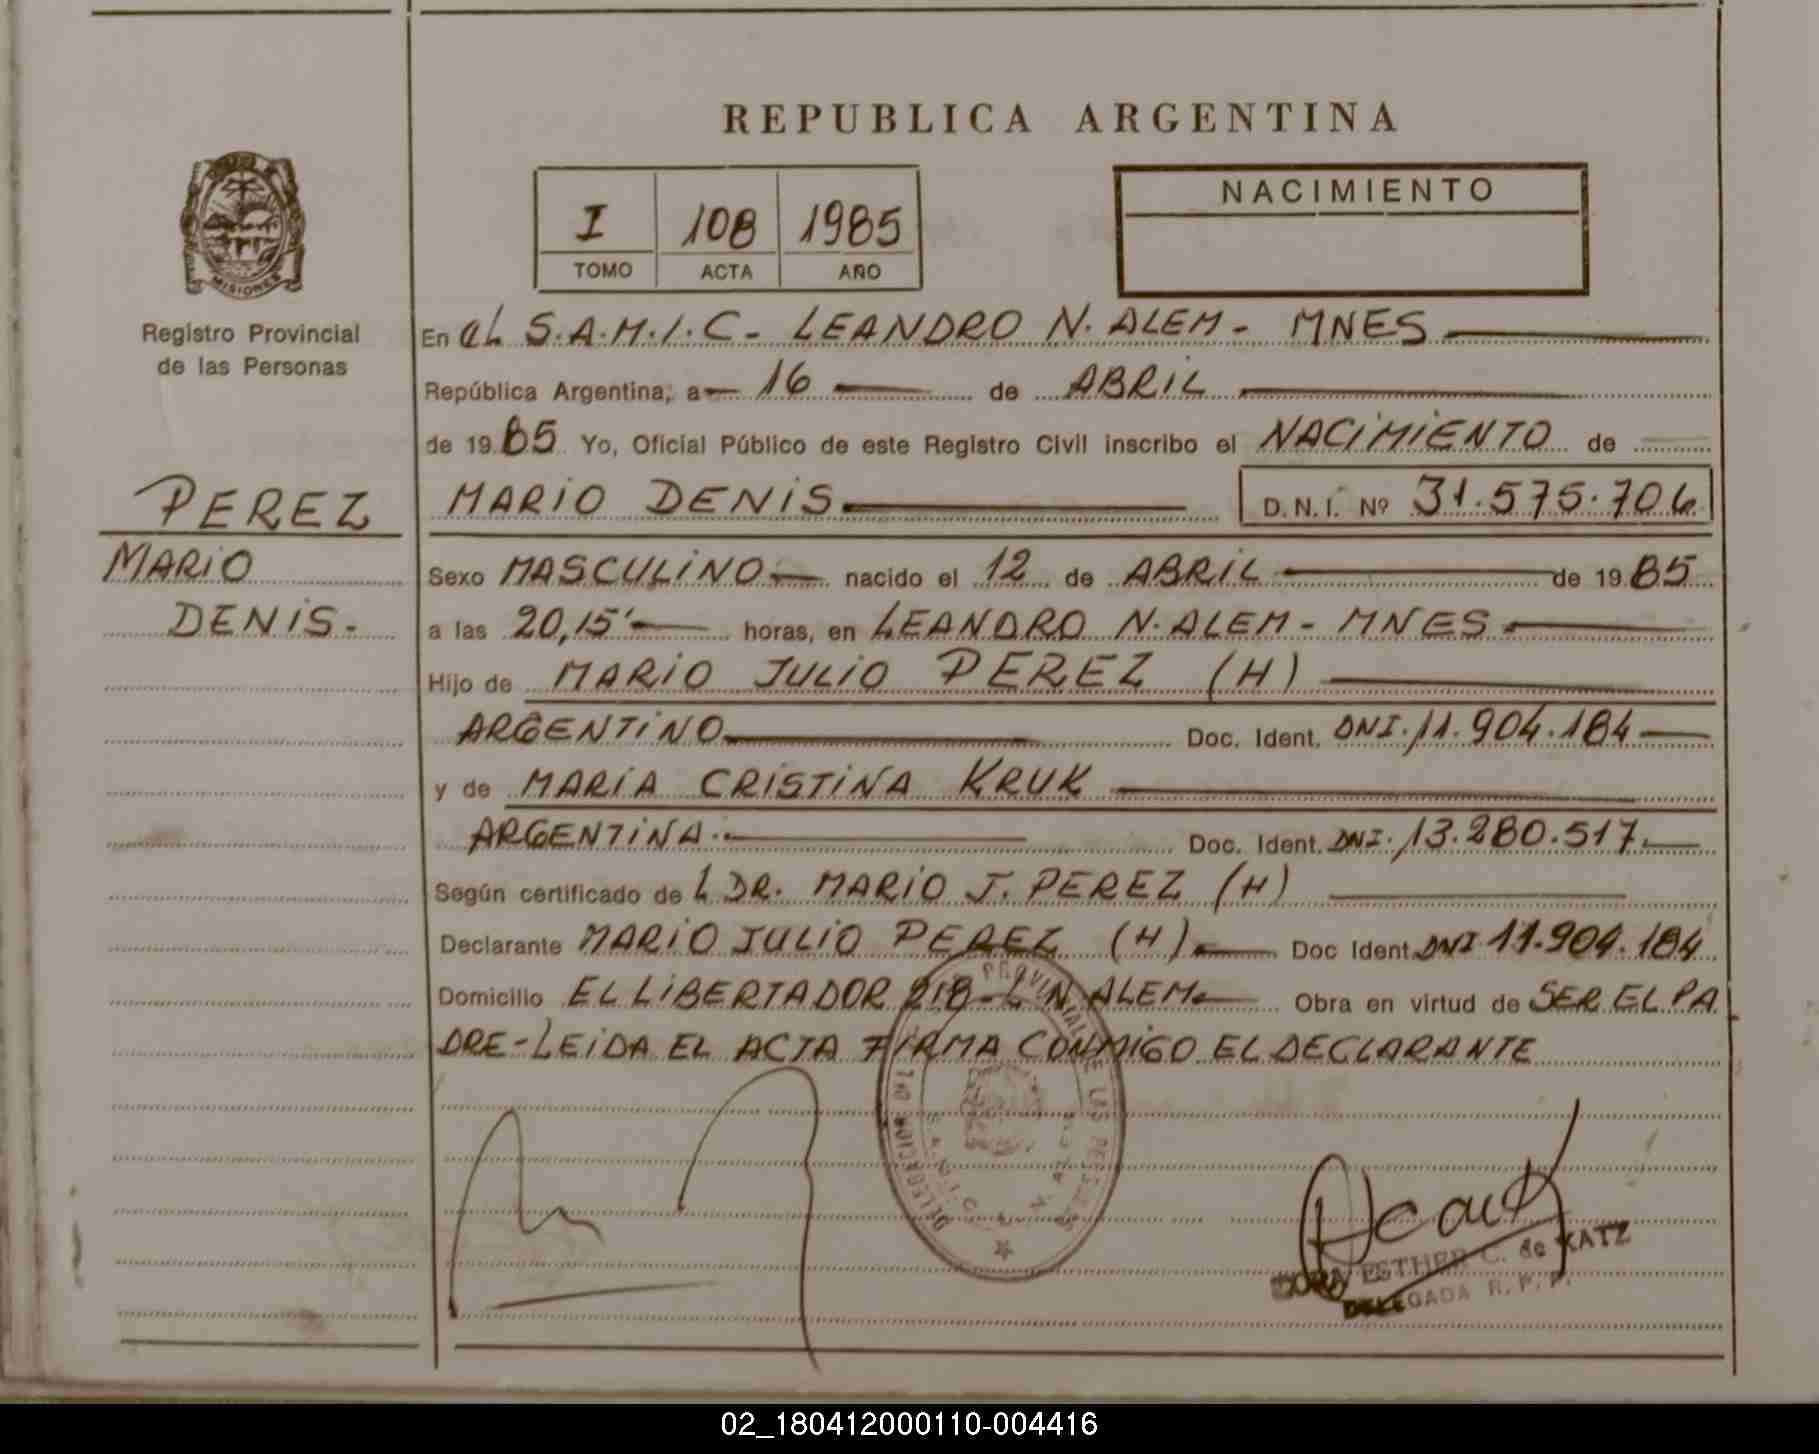 REPUBLICA ARGENTINA
I 108 1985
TOMO ACTA AÑO
NACIMIENTO
MISIONES
Registro Provincial
de las Personas
PEREZ
MARIO
DENIS.-
En EL S.A.M.I.C- LEANDRO N. ALEM- MNES
República Argentina, a 16 de ABRIL
de 1985 Yo, Oficial Público de este Registro Civil inscribo el NACIMIENTO de
MARIO DENIS D.N.I. Nº 31.575.706
Sexo MASCULINO nacido el 12 de ABRIL de 1985
a las 20,15' horas, en LEANDRO N. ALEM- MNES
Hijo de MARIO JULIO PEREZ (H)
ARGENTINO Doc. Ident. DNI. 11.904.184
y de MARIA CRISTINA KRUK
ARGENTINA Doc. Ident. DNI. 13.280.517
Según certificado de L DR. MARIO J. PEREZ (H)
Declarante MARIO JULIO PEREZ (H) Doc Ident. DNI 11.904.184
Domicilio EL LIBERTADOR 218- L N ALEM Obra en virtud de SER EL PA
DRE-LEIDA EL ACTA FIRMA CONMIGO EL DECLARANTE
ESTHER C. de KATZ
DELEGADA R. P. P.
02_180412000110-004416